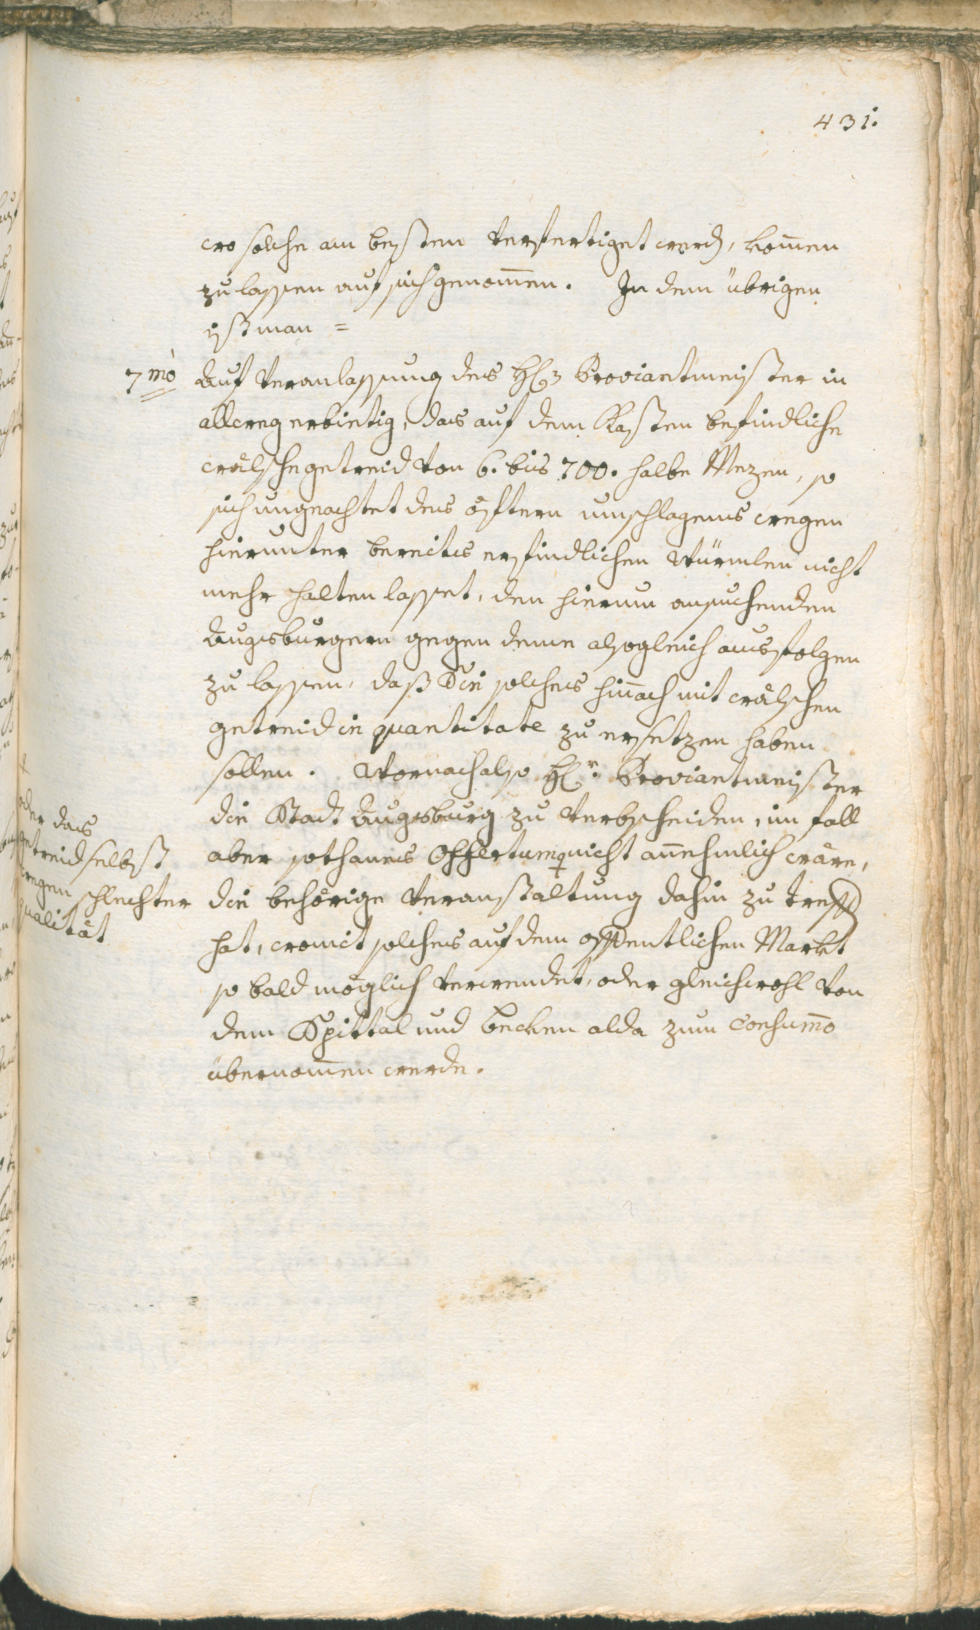 431.
wo solche am besten verfertiget werd, kom̄en
zu lassen auf sich genom̄en. In dem übrigen
ist man =
7mò Auf Veranlassung des H. Proviantmeister in
allweg erbietig, das auf dem Kasten befindliche
wälsche getreid von 6. bis 700. halbe Mezen, so
sich ungeachtet des öftern umschlagens wegen
hierunter bereits erfindlichen Würmlen nicht
mehr halten lasset, den hierum ansuchenden
Augsburgern gegen deme alsogleich ausfolgen
zu lassen, daß Sie solches hinach mit wälschen
getreid in quantitate zu ersetzen haben
sollen. Wornach also Hr. Proviantmeister
die Stadt Augsburg zu verbscheiden, im fall
aber sothanes Offertum nicht an̄ehmlich wäre,
+
oder das
getreid selbst
wegen schlechter
qualität
die behörige Veranstaltung dahin zu treff
hat, womit solches auf dem offentlichen Markt
so bald möglich verwendet, oder gleichwohl von
dem Spittal und becken alda zum Consum̄o
übernom̄en werde.